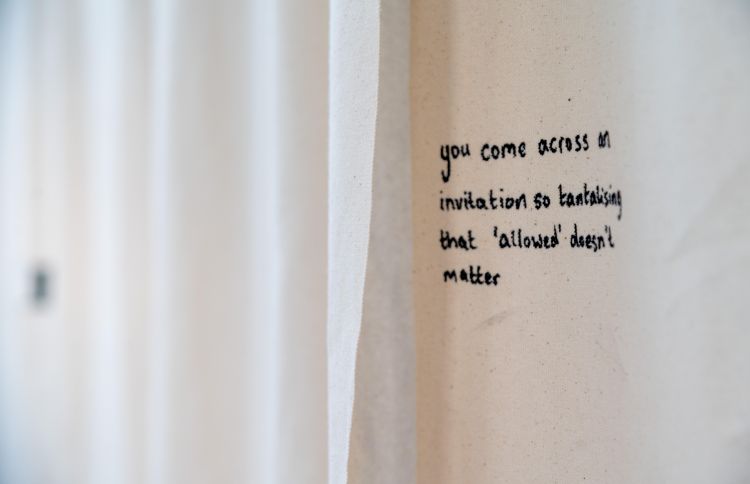 you come across an
invitation so tantalising
that 'allowed' doesn't
matter